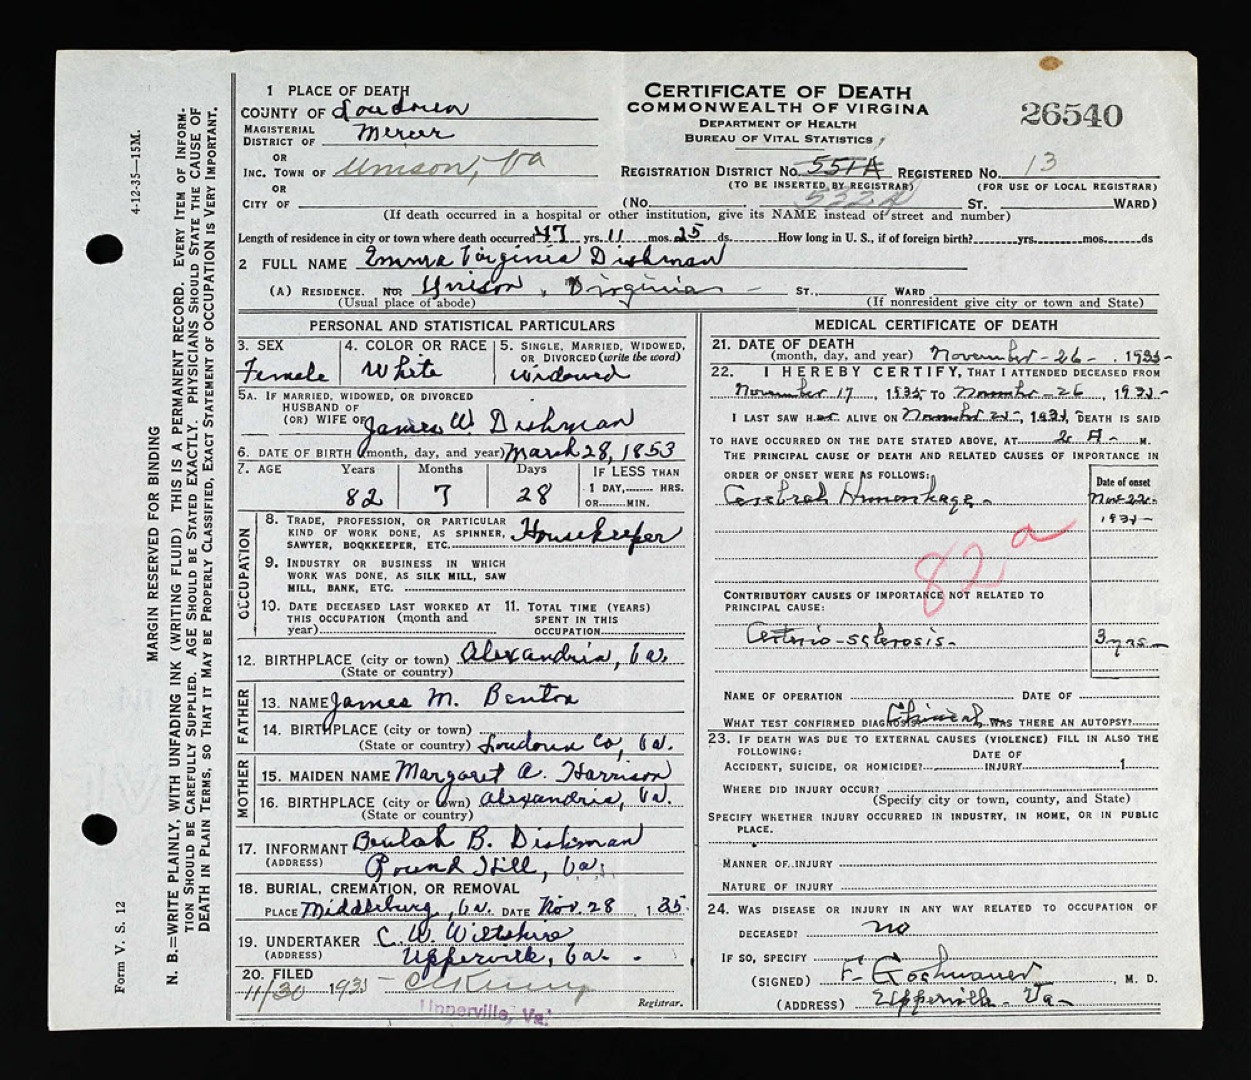 4-12-35—15M.
MARGIN RESERVED FOR BINDING
N. B.=WRITE PLAINLY, WITH UNFADING INK (WRITING FLUID) THIS IS A PERMANENT RECORD. EVERY ITEM OF INFORM-
TION SHOULD BE CAREFULLY SUPPLIED. AGE SHOULD BE STATED EXACTLY. PHYSICIANS SHOULD STATE THE CAUSE OF
DEATH IN PLAIN TERMS, SO THAT IT MAY BE PROPERLY CLASSIFIED, EXACT STATEMENT OF OCCUPATION IS VERY IMPORTANT.
Form V. S. 12
CERTIFICATE OF DEATH
COMMONWEALTH OF VIRGINA
DEPARTMENT OF HEALTH
BUREAU OF VITAL STATISTICS
26540
1 PLACE OF DEATH
COUNTY OF Loudoun
MAGISTERIAL DISTRICT OF Mercer
OR
INC. TOWN OF Unison, Va
OR
CITY OF
REGISTRATION DISTRICT NO. 551A REGISTERED NO. 13
(TO BE INSERTED BY REGISTRAR) (FOR USE OF LOCAL REGISTRAR)
532A
(No. ST. WARD)
(If death occurred in a hospital or other institution, give its NAME instead of street and number)
Length of residence in city or town where death occurred 47 yrs. 11 mos. 25 ds. How long in U. S., if of foreign birth? yrs. mos. ds
2 FULL NAME Emma Virginia Dishman
(A) RESIDENCE. NO. Unison, Virginia ST., WARD
(Usual place of abode) (If nonresident give city or town and State)
PERSONAL AND STATISTICAL PARTICULARS
3. SEX
Female
4. COLOR OR RACE
White
5. SINGLE, MARRIED, WIDOWED,
OR DIVORCED (write the word)
Widowed
5A. IF MARRIED, WIDOWED, OR DIVORCED
HUSBAND OF
(OR) WIFE OF James W. Dishman
6. DATE OF BIRTH (month, day, and year) March 28, 1853
7. AGE Years Months Days IF LESS THAN
82 7 28 1 DAY, HRS.
OR MIN.
OCCUPATION
8. TRADE, PROFESSION, OR PARTICULAR
KIND OF WORK DONE, AS SPINNER, Housekeeper
SAWYER, BOOKKEEPER, ETC.
9. INDUSTRY OR BUSINESS IN WHICH
WORK WAS DONE, AS SILK MILL, SAW
MILL, BANK, ETC.
10. DATE DECEASED LAST WORKED AT 11. TOTAL TIME (YEARS)
THIS OCCUPATION (month and SPENT IN THIS
year) OCCUPATION
12. BIRTHPLACE (city or town) Alexandria, Va.
(State or country)
FATHER
13. NAME James M. Benton
14. BIRTHPLACE (city or town)
(State or country) Loudoun Co, Va.
MOTHER
15. MAIDEN NAME Margaret A. Harrison
16. BIRTHPLACE (city or town) Alexandria, Va.
(State or country)
17. INFORMANT Beulah B. Dishman
(ADDRESS) Round Hill, Va.
18. BURIAL, CREMATION, OR REMOVAL
PLACE Middleburg, Va. DATE Nov. 28, 1935
19. UNDERTAKER C. W. Wiltshire
(ADDRESS) Upperville, Va.
20. FILED
11/30 1935
Registrar.
Upperville, Va.
MEDICAL CERTIFICATE OF DEATH
21. DATE OF DEATH
(month, day, and year) November-26-, 1935-
22. I HEREBY CERTIFY, THAT I ATTENDED DECEASED FROM
November 17, 1935 TO November-26, 1935-
I LAST SAW her ALIVE ON November 25-, 1935, DEATH IS SAID
TO HAVE OCCURRED ON THE DATE STATED ABOVE, AT 2 A- M.
THE PRINCIPAL CAUSE OF DEATH AND RELATED CAUSES OF IMPORTANCE IN
ORDER OF ONSET WERE AS FOLLOWS: Date of onset
Cerebral Hemorrhage- Nov-22-
1935-
82 a
CONTRIBUTORY CAUSES OF IMPORTANCE NOT RELATED TO
PRINCIPAL CAUSE:
Arterio-sclerosis- 3 yrs-
NAME OF OPERATION DATE OF
WHAT TEST CONFIRMED DIAGNOSIS? Clinical WAS THERE AN AUTOPSY?
23. IF DEATH WAS DUE TO EXTERNAL CAUSES (VIOLENCE) FILL IN ALSO THE
FOLLOWING: DATE OF
ACCIDENT, SUICIDE, OR HOMICIDE? INJURY 1
WHERE DID INJURY OCCUR?
(Specify city or town, county, and State)
SPECIFY WHETHER INJURY OCCURRED IN INDUSTRY, IN HOME, OR IN PUBLIC
PLACE.
MANNER OF INJURY
NATURE OF INJURY
24. WAS DISEASE OR INJURY IN ANY WAY RELATED TO OCCUPATION OF
DECEASED? no
IF SO, SPECIFY
(SIGNED) F. Goshwauer, M. D.
(ADDRESS) Upperville- Va-